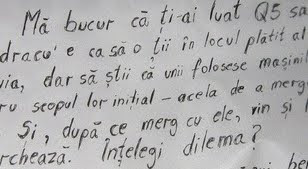 Mă bucur că ți-ai luat Q5 sa
dracu' e ca să o ții în locul plătit al
via, dar să știi că unii folosesc mașinil
ru scopul lor inițial – acela de a merg
Și, după ce merg cu ele, vin și
rchează. Înțelegi dilema?